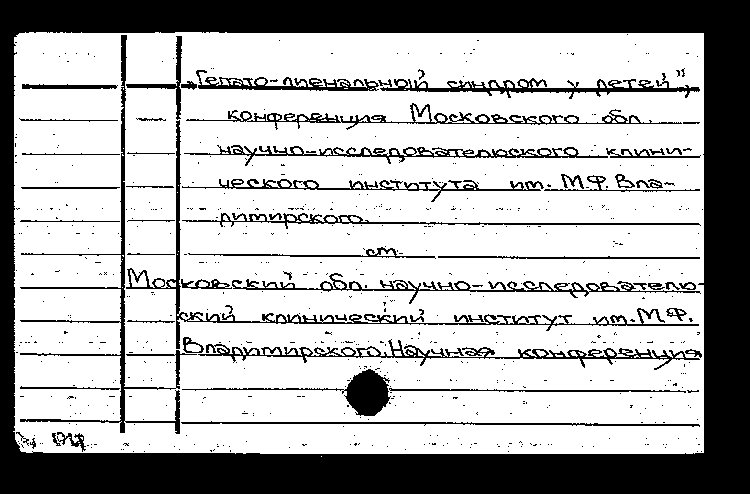 „Гепато-лиенальный синдром у детей",
конференция Московского обл.
научно-исследовательского клини-
ческого института им. М.Ф. Вла-
димирского.
см.
Московский обл. научно-исследователь-
ский клинический институт им. М.Ф.
Владимирского. Научная конференция